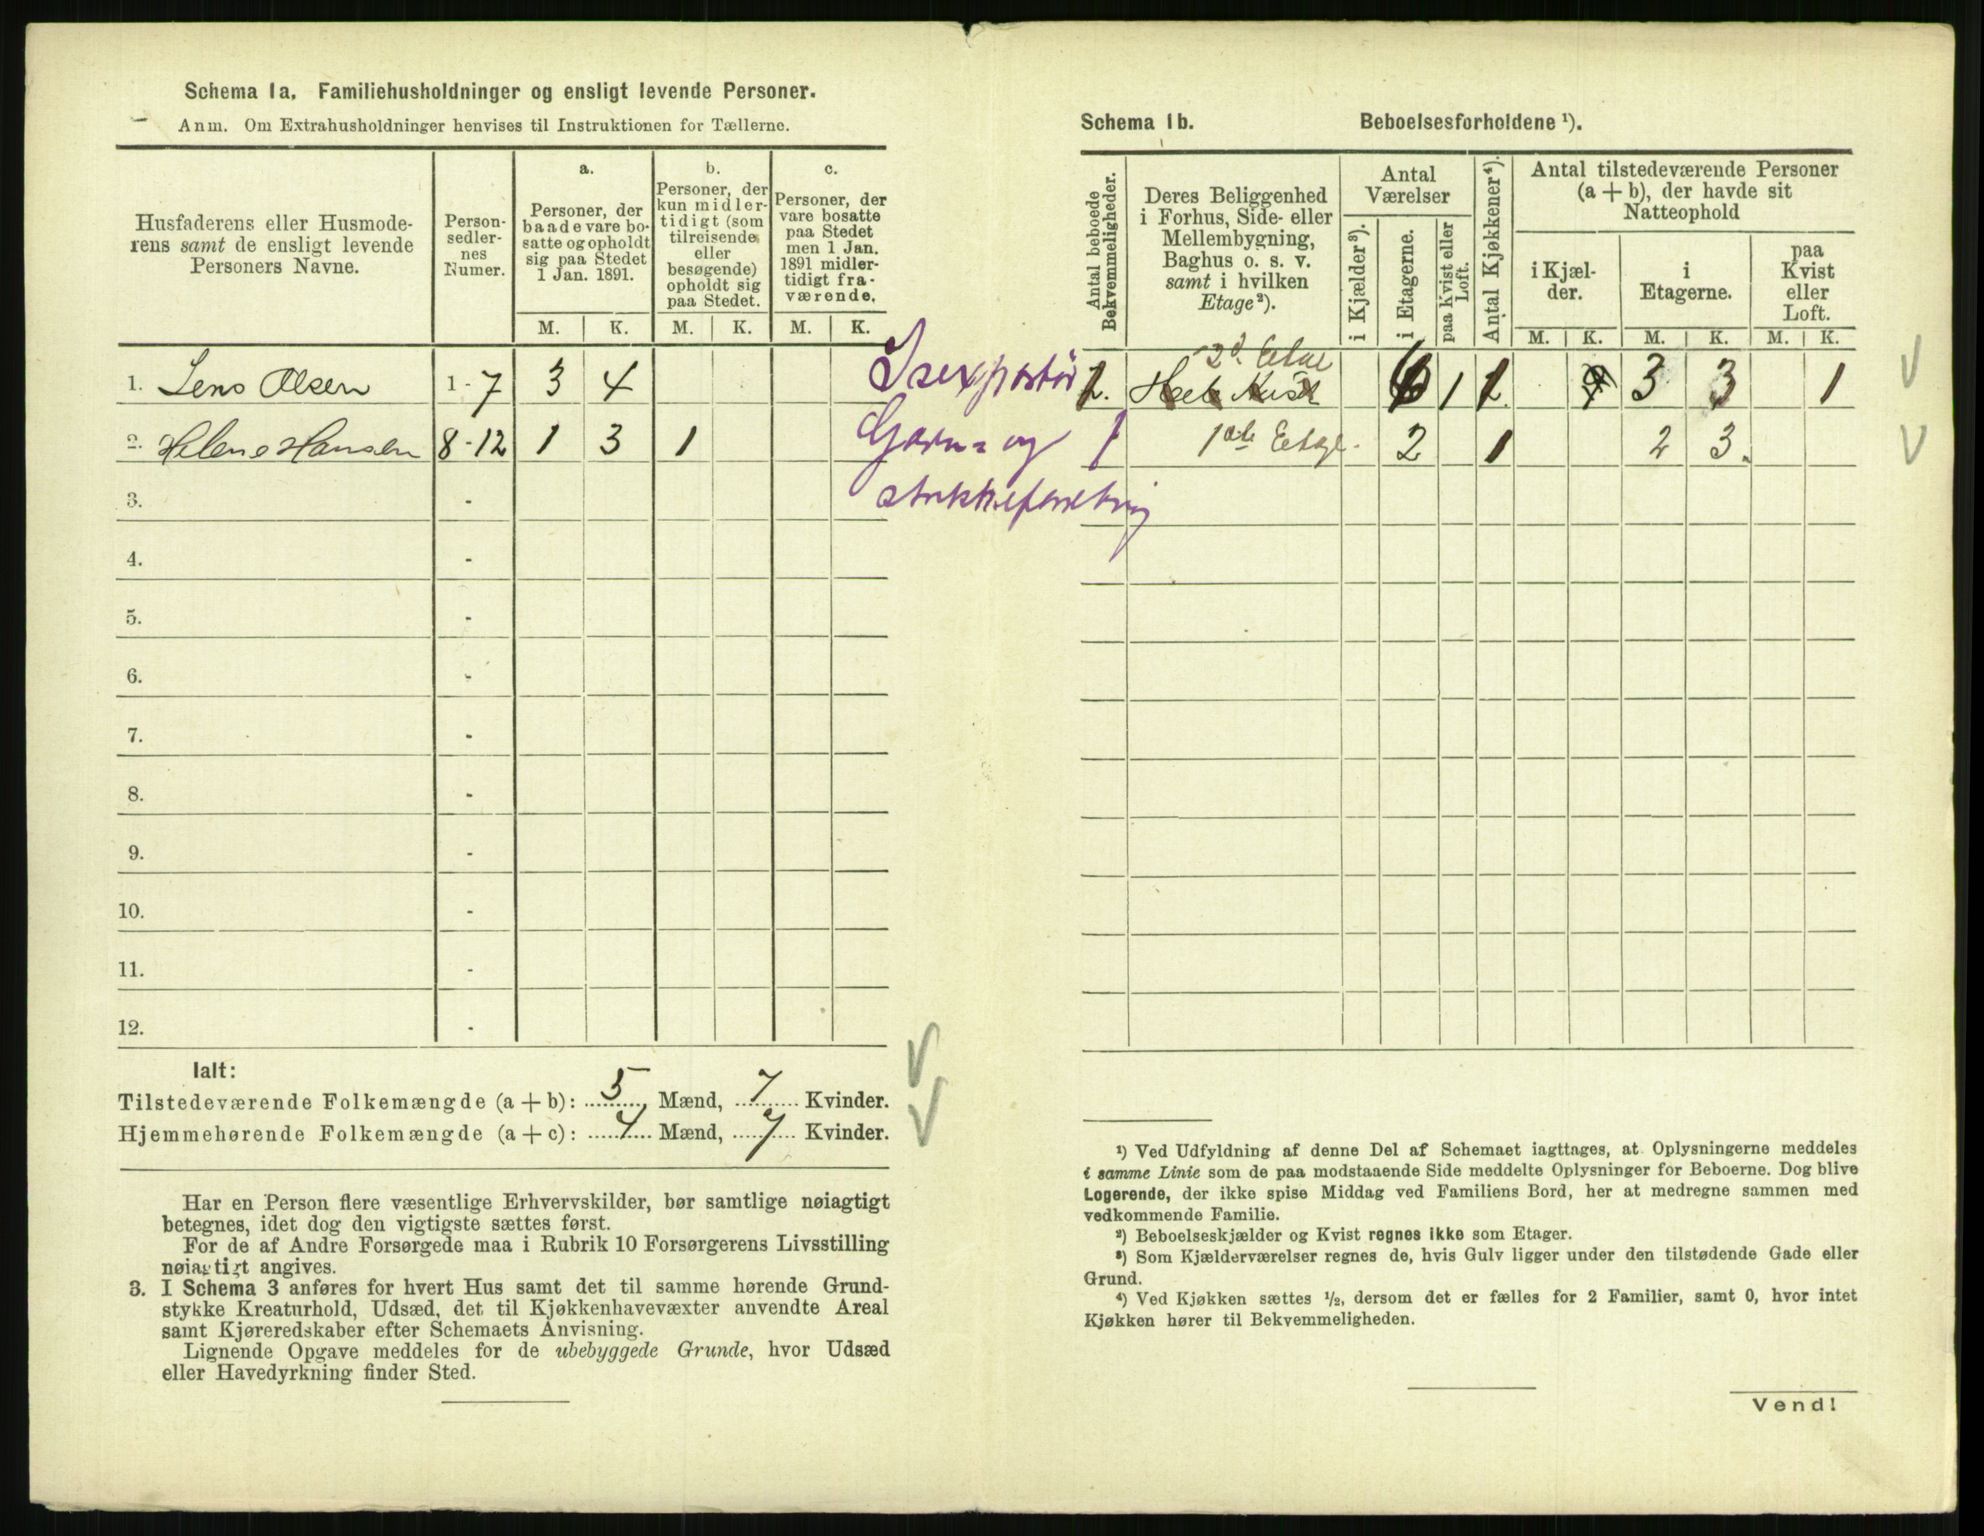 Schema 1a. Familiehusholdninger og ensligt levende Personer.
Anm. Om Extrahusholdninger henvises til Instruktionen for Tællerne.
Husfaderens eller Husmode-
rens samt de ensligt levende
Personers Navne.
Person-
sedler-
nes
Numer.
a.
Personer, der
baade vare bo-
satte og opholdt
sig paa Stedet
1 Jan. 1891.
b.
Personer, der
kun midler-
tidigt (som
tilreisende
eller
besøgende)
opholdt sig
paa Stedet.
c.
Personer, der
vare bosatte
paa Stedet
men 1 Jan.
1891 midler-
tidigt fra-
værende.
M. K. M. K. M. K.
1. Jens Olsen 1-7 3 4
2. Helene Hansen 8-12 1 3 1
3. -
4. -
5. -
6. -
7. -
8. -
9. -
10. -
11. -
12. -
Isexportør
Garn- og
strikkeforretning
Ialt:
Tilstedeværende Folkemængde (a + b): 5 Mænd, 7 Kvinder.
Hjemmehørende Folkemængde (a + c): 4 Mænd, 7 Kvinder.
Har en Person flere væsentlige Erhvervskilder, bør samtlige nøiagtigt
betegnes, idet dog den vigtigste sættes først.
For de af Andre Forsørgede maa i Rubrik 10 Forsørgerens Livsstilling
nøiagtigt angives.
3. I Schema 3 anføres for hvert Hus samt det til samme hørende Grund-
stykke Kreaturhold, Udsæd, det til Kjøkkenhavevæxter anvendte Areal
samt Kjøreredskaber efter Schemaets Anvisning.
Lignende Opgave meddeles for de ubebyggede Grunde, hvor Udsæd
eller Havedyrkning finder Sted.
Schema 1b. Beboelsesforholdene ¹).
Antal beboede
Bekvemmeligheder.
Deres Beliggenhed
i Forhus, Side- eller
Mellembygning,
Baghus o. s. v.
samt i hvilken
Etage ²).
Antal
Værelser
i Kjælder ³).
i Etagerne.
paa Kvist eller
Loft.
Antal Kjøkkener ⁴).
Antal tilstedeværende Personer
(a + b), der havde sit
Natteophold
i Kjæl-
der.
i
Etagerne.
paa
Kvist
eller
Loft.
M. K. M. K. M. K.
2d. Etage
1 6 1 1 3 3 1
1 1ste Etage. 2 1 2 3.
¹) Ved Udfyldning af denne Del af Schemaet iagttages, at Oplysningerne meddeles
i samme Linie som de paa modstaaende Side meddelte Oplysninger for Beboerne. Dog blive
Logerende, der ikke spise Middag ved Familiens Bord, her at medregne sammen med
vedkommende Familie.
²) Beboelseskjælder og Kvist regnes ikke som Etager.
³) Som Kjælderværelser regnes de, hvis Gulv ligger under den tilstødende Gade eller
Grund.
⁴) Ved Kjøkken sættes ½, dersom det er fælles for 2 Familier, samt 0, hvor intet
Kjøkken hører til Bekvemmeligheden.
Vend!